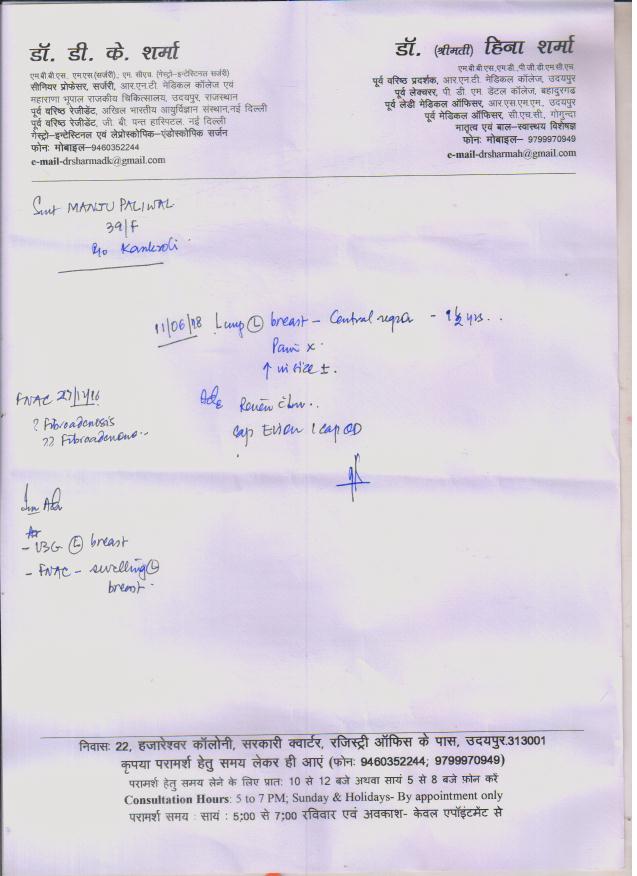 डॉ. डी. के. शर्मा
एम.बी.बी.एस., एम.एस.(सर्जरी)., एम. सीएच. (गेस्ट्रो-इन्टेस्टिनल सर्जरी)
सीनियर प्रोफेसर, सर्जरी, आर.एन.टी. मेडिकल कॉलेज एवं
महाराणा भूपाल राजकीय चिकित्सालय, उदयपुर, राजस्थान
पूर्व वरिष्ठ रेजीडेंट, अखिल भारतीय आयुर्विज्ञान संस्थान,नई दिल्ली
पूर्व वरिष्ठ रेजीडेंट, जी. बी. पन्त हास्पिटल, नई दिल्ली
गेस्ट्रो-इन्टेस्टिनल एवं लेप्रोस्कोपिक-एंडोस्कोपिक सर्जन
फोन: मोबाइल-9460352244
e-mail-drsharmadk@gmail.com
डॉ. (श्रीमती) हिना शर्मा
एम.बी.बी.एस.एम.डी.,पी.जी.डी.एम.सी.एच.
पूर्व वरिष्ठ प्रदर्शक, आर.एन.टी. मेडिकल कॉलेज, उदयपुर
पूर्व लेक्चरर, पी. डी. एम. डेंटल कॉलेज, बहादुरगढ
पूर्व लेडी मेडिकल ऑफिसर, आर.एस.एम.एम., उदयपुर
पूर्व मेडिकल ऑफिसर, सी.एच.सी., गोगुन्दा
मातृत्व एवं बाल-स्वास्थय विशेषज्ञ
फोन: मोबाइल- 9799970949
e-mail-drsharmah@gmail.com
Smt MANJU PALIWAL
39/F
R/o Kankroli
11/06/18 Lump (L) breast - Central region - 1½ yrs..
Pain x
↑ in size ±.
FNAC 27/12/16
? Fibroadenosis
?? Fibroadenoma..
Adv Review
Cap Evion 1 cap OD
Inv Adv
- USG (L) breast
- FNAC - swelling (L)
breast
निवास: 22, हजारेश्वर कॉलोनी, सरकारी क्वार्टर, रजिस्ट्री ऑफिस के पास, उदयपुर.313001
कृपया परामर्श हेतु समय लेकर ही आएं (फोन: 9460352244; 9799970949)
परामर्श हेतु समय लेने के लिए प्रात: 10 से 12 बजे अथवा सायं 5 से 8 बजे फ़ोन करें
Consultation Hours: 5 to 7 PM; Sunday & Holidays- By appointment only
परामर्श समय : सायं : 5;00 से 7;00 रविवार एवं अवकाश- केवल एपॉइंटमेंट से